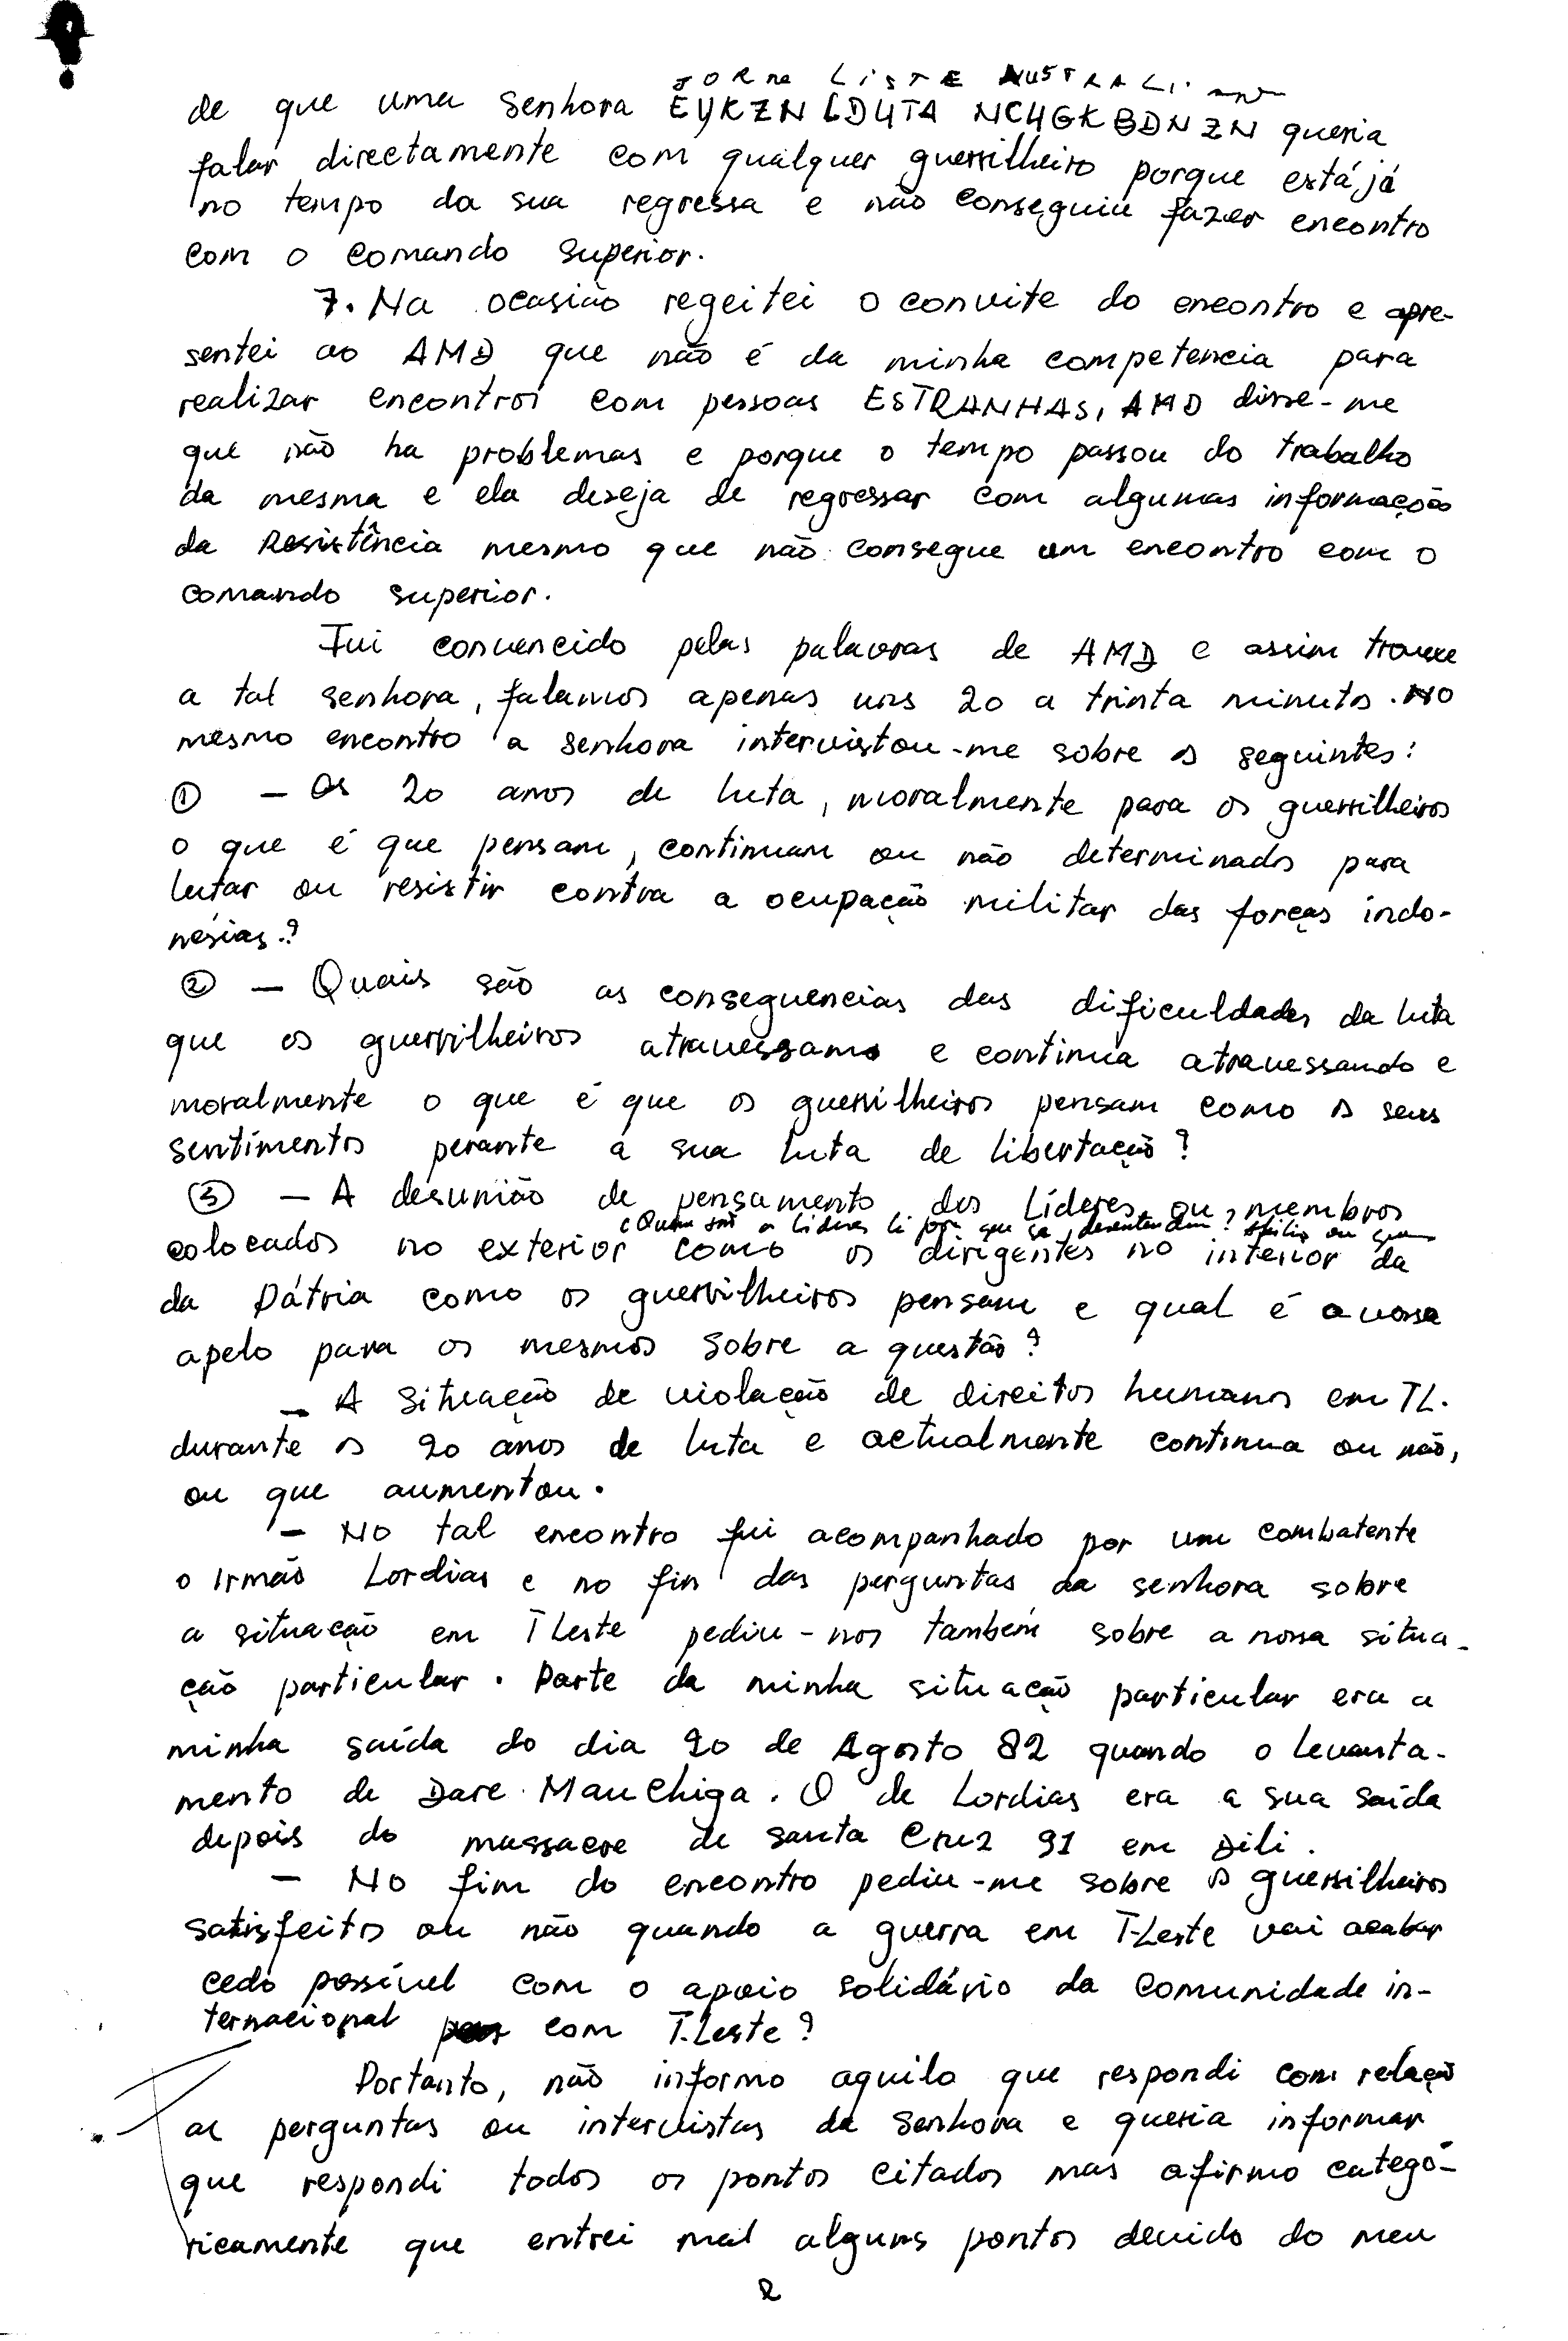 JORNA LISTE AUSTRALI
de que uma senhora EYKZN LDUTA NCHGKBDNZN queria
falar directamente com qualquer guerrilheiro porque está já
no tempo da sua regressa e não conseguiu fazer encontro
com o comando superior.
7. Na ocasião regeitei o convite do encontro e apre-
sentei ao AMD que não é da minha competencia para
realizar encontros com pessoas ESTRANHAS, AMD disse-me
que não ha problemas e porque o tempo passou do trabalho
da mesma e ela deseja de regressar com algumas informações
da Resistência mesmo que não consegue um encontro com o
comando superior.
Fui convencido pelas palavras de AMD e assim trouxe
a tal senhora, falamos apenas uns 20 a trinta minutos. No
mesmo encontro a senhora intervistou-me sobre os seguintes:
① - Os 20 anos de luta, moralmente para os guerrilheiros
o que é que pensam, continuam ou não determinados para
lutar ou resistir contra a ocupação militar das forças indo-
nésias.?
② - Quais são as conseguencias das dificuldades da luta
que os guerrilheiros atravessamo e continua atravessando e
moralmente o que é que os guerrilheiros pensam como os seus
sentimentos perante a sua luta de libertação?
③ - A desunião de pensamento dos Líderes ou membros
(Quem são os líderes li por que se desentendem? ou quem
colocados no exterior como os dirigentes no interior da
da Pátria como os guerrilheiros pensam e qual é a vossa
apelo para os mesmos sobre a questão?
- A situação de violação de direitos humanos em TL.
durante os 20 anos de luta e actualmente continua ou não,
ou que aumentou.
- No tal encontro fui acompanhado por um combatente
o Irmão Lordias e no fin das perguntas da senhora sobre
a situação em TLeste pediu-nos também sobre a nossa situa-
ção particular. Parte da minha situação particular era a
minha saída do dia 20 de Agosto 82 quando o levanta-
mento de Dare Mauchiga. O de Lordias era a sua saída
depois do massacre de Santa Cruz 91 em Dili.
- No fim do encontro pediu-me sobre os guerrilheiros
satisfeitos ou não quando a guerra em T-Leste vai acabar
cedo possível com o apoio solidário da comunidade in-
ternacional com T.Leste?
Portanto, não informo aquilo que respondi com relação
as perguntas ou intervistas da senhora e queria informar
que respondi todos os pontos citados mas afirmo categó-
ricamente que entrei mal alguns pontos devido do meu
2